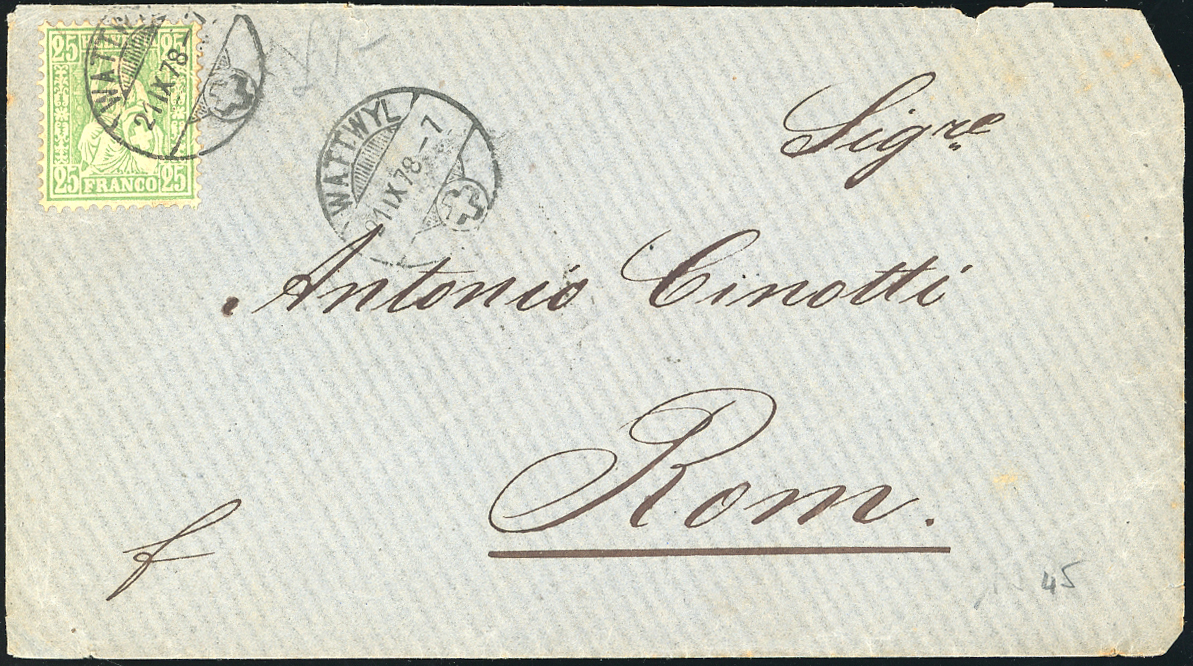 25 HELVETIA 25
25 FRANCO 25
WATTWYL
21 IX 78 –
WATTWYL
21 IX 78 – 7
Sigre
Antonio Cinotti
Rom.
f
45